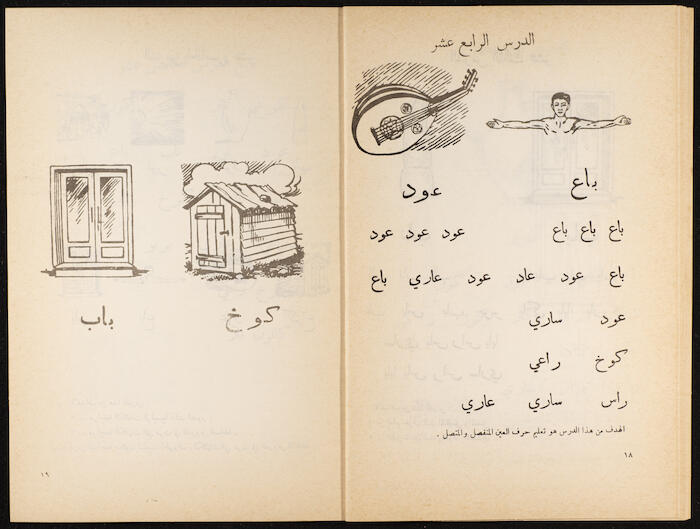 الدرس الرابع عشر
باع عود
باع باع باع عود عود عود
باع عود عاد عود عاري باع
عود ساري
كوخ راعي
راس ساري عاري
الهدف من هذا الدرس هو تعليم حرف العين المنفصل والمتصل .
١٨
كوخ باب
١٩